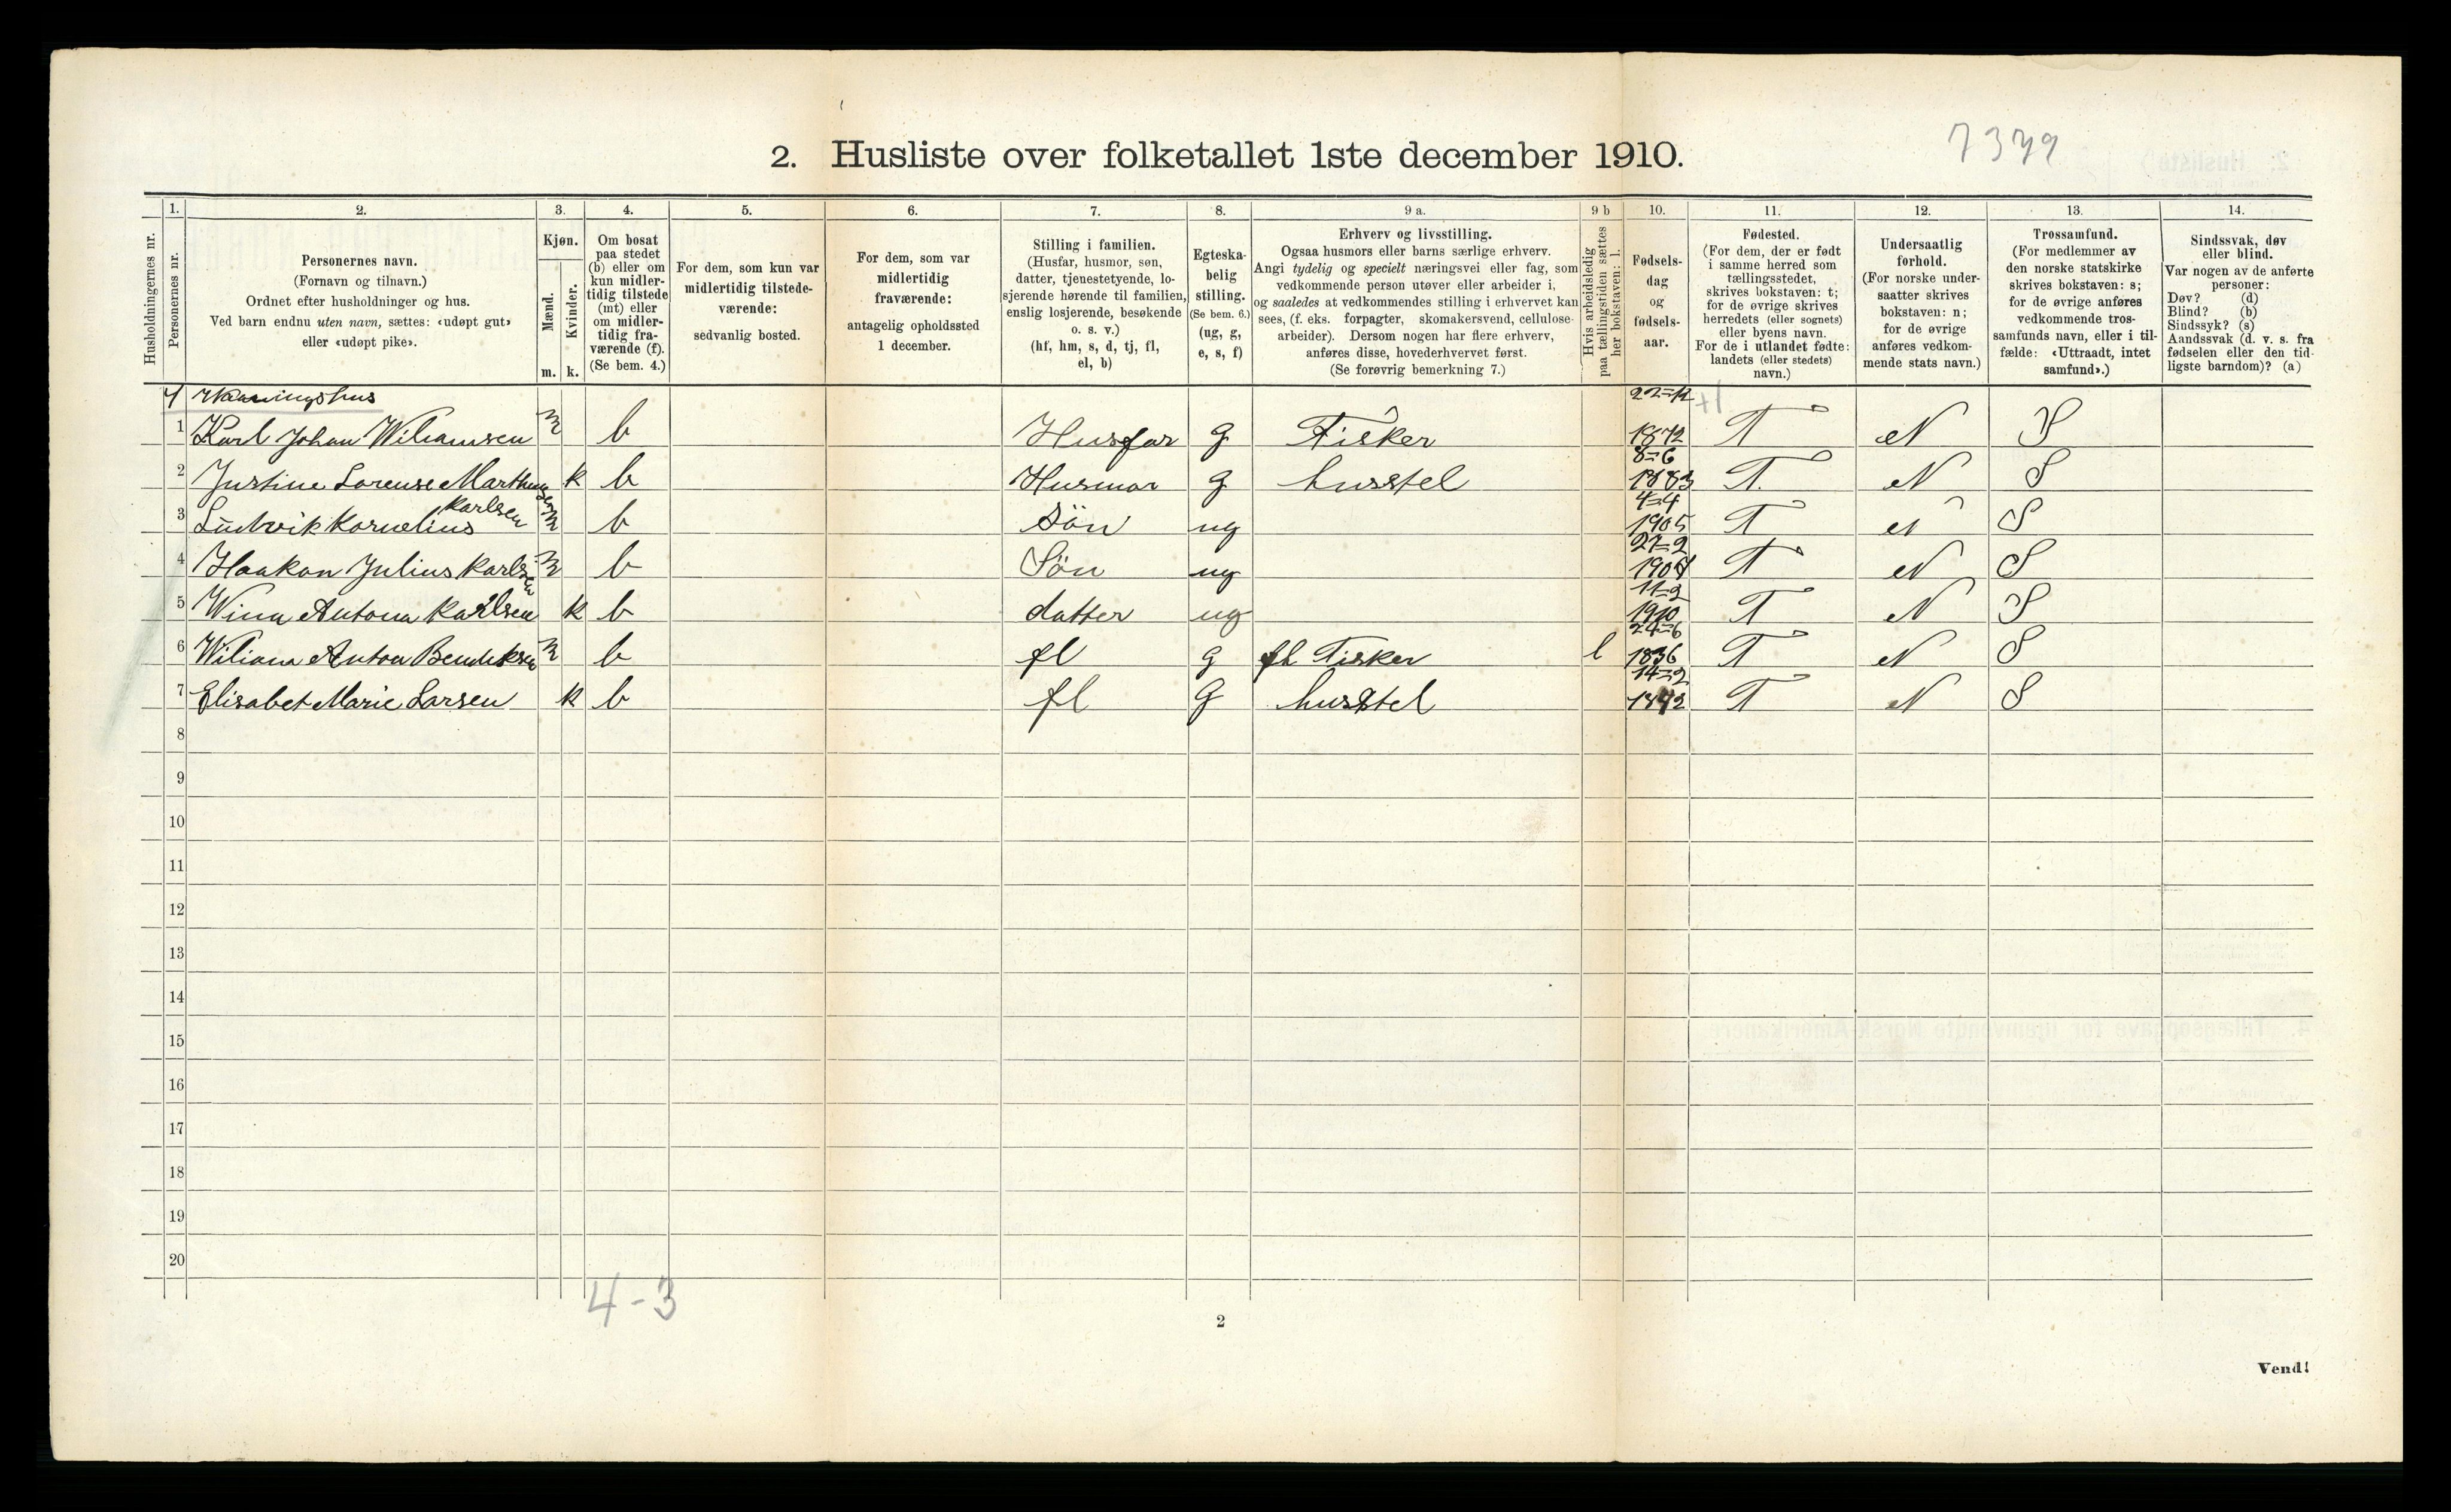 7379
2. Husliste over folketallet 1ste december 1910.
Husholdningernes nr.
1.
Personernes nr.
2.
Personernes navn.
(Fornavn og tilnavn.)
Ordnet efter husholdninger og hus.
Ved barn endnu uten navn, sættes: «udøpt gut»
eller «udøpt pike».
3.
Kjøn.
Mænd.
Kvinder.
m. k.
4.
Om bosat
paa stedet
(b) eller om
kun midler-
tidig tilstede
(mt) eller
om midler-
tidig fra-
værende (f).
(Se bem. 4.)
5.
For dem, som kun var
midlertidig tilstede-
værende:
sedvanlig bosted.
6.
For dem, som var
midlertidig
fraværende:
antagelig opholdssted
1 december.
7.
Stilling i familien.
(Husfar, husmor, søn,
datter, tjenestetyende, lo-
sjerende hørende til familien,
enslig losjerende, besøkende
o. s. v.)
(hf, hm, s, d, tj, fl,
el, b)
8.
Egteska-
belig
stilling.
(Se bem. 6.)
(ug, g,
e, s, f)
9 a.
Erhverv og livsstilling.
Ogsaa husmors eller barns særlige erhverv.
Angi tydelig og specielt næringsvei eller fag, som
vedkommende person utøver eller arbeider i,
og saaledes at vedkommendes stilling i erhvervet kan
sees, (f. eks. forpagter, skomakersvend, cellulose-
arbeider). Dersom nogen har flere erhverv,
anføres disse, hovederhvervet først.
(Se forøvrig bemerkning 7.)
9 b
Hvis arbeidsledig
paa tællingstiden sættes
her bokstaven: l.
10.
Fødsels-
dag
og
fødsels-
aar.
11.
Fødested.
(For dem, der er født
i samme herred som
tællingsstedet,
skrives bokstaven: t;
for de øvrige skrives
herredets (eller sognets)
eller byens navn.
For de i utlandet fødte:
landets (eller stedets)
navn.)
12.
Undersaatlig
forhold.
(For norske under-
saatter skrives
bokstaven: n;
for de øvrige
anføres vedkom-
mende stats navn.)
13.
Trossamfund.
(For medlemmer av
den norske statskirke
skrives bokstaven: s;
for de øvrige anføres
vedkommende tros-
samfunds navn, eller i til-
fælde: «Uttraadt, intet
samfund».)
14.
Sindssvak, døv
eller blind.
Var nogen av de anførte
personer:
Døv? (d)
Blind? (b)
Sindssyk? (s)
Aandssvak (d. v. s. fra
fødselen eller den tid-
ligste barndom)? (a)
22=11
1 Karl Johan Wiliamsen m b Husfar g Fisker 1872 T N S
8=6
2 Justine Lorense k b Husmor g husstel 1883 T. N S
4=4
3 Ludvik Kornelius Karlsen m b Sön ug 1905 T N S
27=2
4 Haakon Julius Karlsen m b Sön ug T N S
11=2
5 Wina Antona Karlsen k b datter ug 1910 T N S
24=6
6 Anton Bendeksen m b fl g fh Fisker l 1836 T N S
14=2
7 Elisabet Marie Larsen k b fl G husstel T N S
8
9
10
11
12
13
14
15
16
17
18
19
20
4-3
2
Vend!